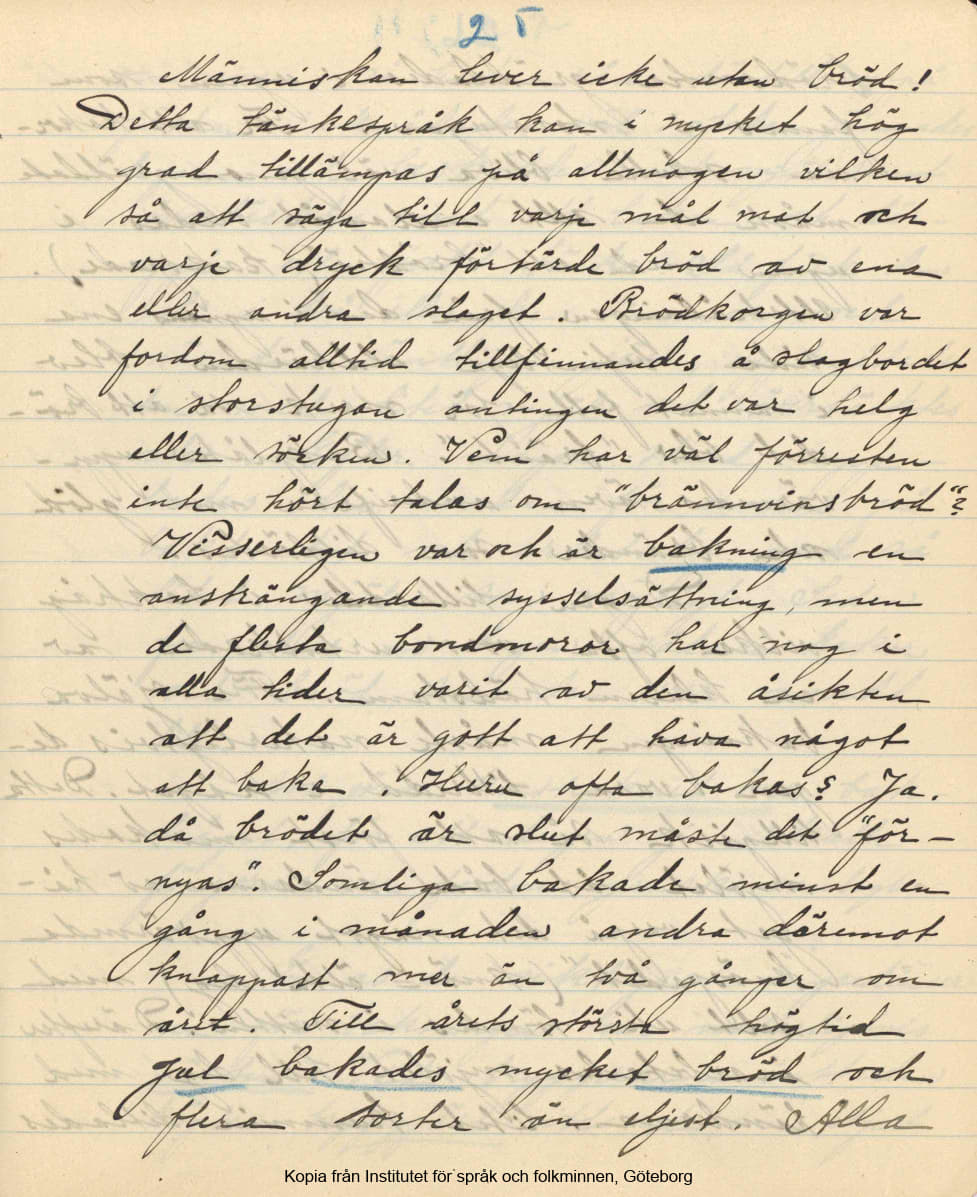 25
Människan lever icke utan bröd!
Detta tänkespråk kan i mycket hög
grad tillämpas på allmogen vilken
så att säga till varje mål mat och
varje dryck förtärde bröd av ena
eller andra slaget. Brödkorgen var
fordom alltid tillfinnandes å slagbordet
i storstugan antingen det var helg
eller söcken. Vem har väl förresten
inte hört talas om "brännvinsbröd"?
Visserligen var och är bakning en
ansträngande sysselsättning, men
de flesta bondmoror har nog i
alla tider varit av den åsikten
att det är gott att hava något
att baka. Huru ofta bakas? Ja.
då brödet är slut måste det "för-
nyas". Somliga bakade minst en
gång i månaden andra däremot
knappast mer än två gånger om
året. Till årets största högtid
Jul bakades mycket bröd och
flera sorter än eljest. Alla
Kopia från Institutet för språk och folkminnen, Göteborg